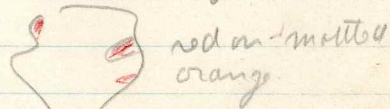 red on mottled
orange